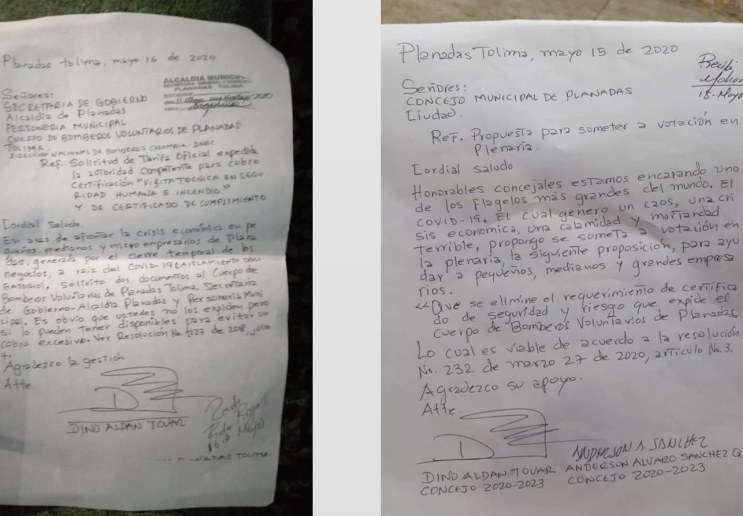 Planadas Tolima, mayo 16 de 2020
ALCALDIA MUNICIPAL
PLANADAS TOLIMA
Señores:
SECRETARIA DE GOBIERNO
Alcaldía de Planadas
PERSONERIA MUNICIPAL
CUERPO DE BOMBEROS VOLUNTARIOS DE PLANADAS
TOLIMA.
DIRECCION NACIONAL DE BOMBEROS COLOMBIA - DNBC
Ref. Solicitud de Tarifa Oficial expedida
la autoridad Competente para cobro
Certificación "VISITA TECNICA EN SEGU
RIDAD HUMANA E INCENDIO"
Y DE CERTIFICADO DE CUMPLIMIENTO
Cordial Saludo
En aras de afrontar la crisis económica en pe
queños, medianos y micro empresarios de Plana
das, generada por el cierre temporal de los
negocios, a raiz del Covid-19 (AISLAMIENTO OBLI
GATORIO), solicito dos documentos al Cuerpo de
Bomberos Voluntarios de Planadas Tolima, Secretaria
de Gobierno-Alcaldia Planadas y Personeria Muni
cipal. Es obvio que ustedes no los expiden pero
si lo pueden tener disponibles para evitar un
cobro excesivo. Ver Resolución No. 1127 de 2018,
Agradezco la gestión
Atte
DINO ALDAN TOVAR
Mayo
PLANADAS TOLIMA
Planadas Tolima, mayo 15 de 2020
15-Mayo
Señores:
CONCEJO MUNICIPAL DE PLANADAS
Ciudad.
Ref. Propuesta para someter a votación en
Plenaria.
Cordial saludo
Honorables concejales estamos encarando uno
de los flagelos mas grandes del mundo. El
COVID-19. El cual genero un caos, una cri
sis economica, una calamidad y mortandad
terrible, propongo se someta a votación en
la plenaria, la siguiente proposición, para ayu
dar a pequeños, medianos y grandes empresa
rios.
<<Que se elimine el requerimiento de certifica
do de seguridad y riesgo que expide el
Cuerpo de "Bomberos Voluntarios de Planadas
Lo cual es viable de acuerdo a la resolución
No. 232 de marzo 27 de 2020, articulo No. 3.
Agradezco su apoyo.
Atte
ANDERSON A SANCHEZ
DINO ALDAN TOVAR ANDERSON ALVARO SANCHEZ Q
CONCEJO 2020-2023 CONCEJO 2020-2023